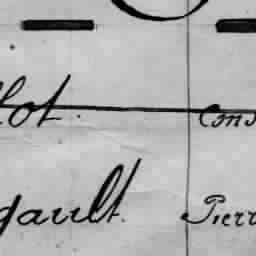 lot. Cons
gault. Pierr